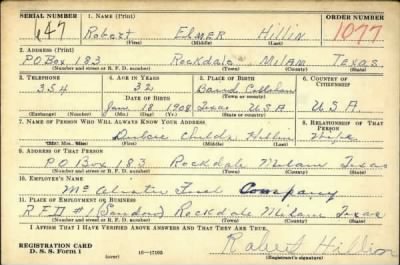 SERIAL NUMBER 1. NAME (Print) ORDER NUMBER
647 Robert Elmer Hillin 1077
(First) (Middle) (Last)
2. ADDRESS (Print)
P.O. Box 183 Rockdale Milam Texas
(Number and street or R. F. D. number) (Town) (County) (State)
3. TELEPHONE 4. AGE IN YEARS 5. PLACE OF BIRTH 6. COUNTRY OF CITIZENSHIP
354 32 Baird Callahan
DATE OF BIRTH
Jan. 18 1908 Texas U.S.A U.S.A
7. NAME OF PERSON WHO WILL ALWAYS KNOW YOUR ADDRESS 8. RELATIONSHIP OF THAT PERSON
Childs Hillin Wife
(Mr., Mrs., Miss) (First) (Middle) (Last)
9. ADDRESS OF THAT PERSON
P.O. Box 183 Rockdale Milam Texas
(Number and street or R. F. D. number) (Town) (County) (State)
10. EMPLOYER'S NAME
McAlester Fuel Company
11. PLACE OF EMPLOYMENT OR BUSINESS
R.F.D #1 (Sandow) Rockdale Milam Texas
(Number and street or R. F. D. number) (Town) (County) (State)
I AFFIRM THAT I HAVE VERIFIED ABOVE ANSWERS AND THAT THEY ARE TRUE.
Robert Hillin
REGISTRATION CARD
D. S. S. Form 1 (over) 16—17105 (Registrant's signature)